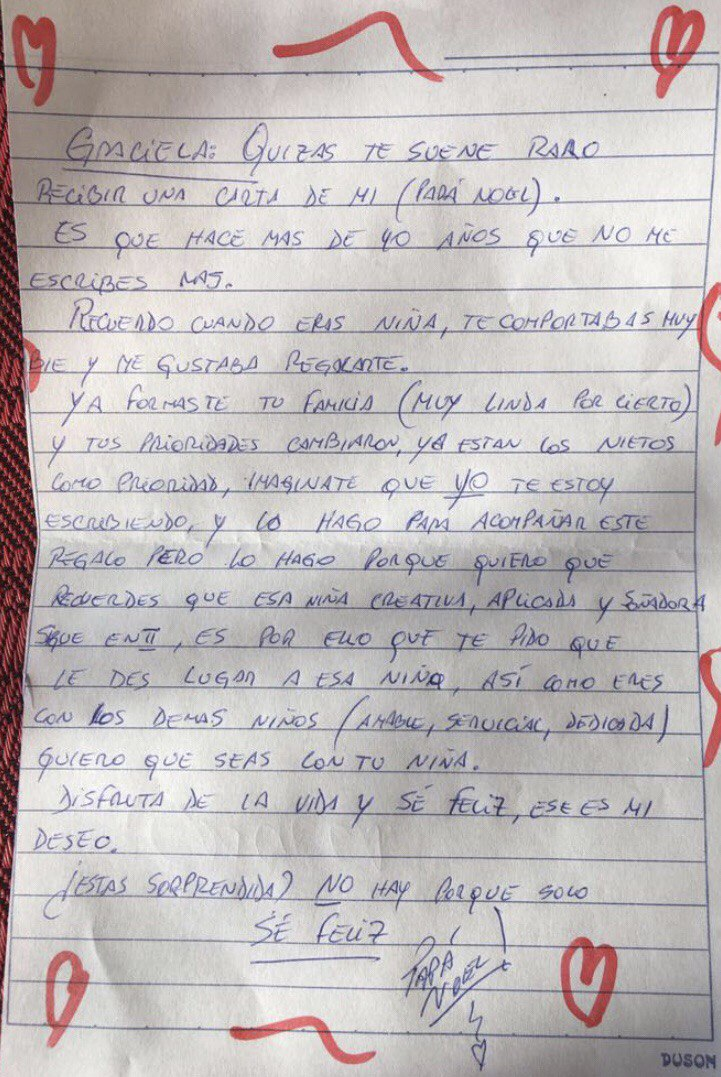 GRACIELA: QUIZAS TE SUENE RARO
RECIBIR UNA CARTA DE MI (PAPÁ NOEL).
ES QUE HACE MAS DE 40 AÑOS QUE NO ME
ESCRIBES MAS.
RECUERDO CUANDO ERAS NIÑA, TE COMPORTABAS MUY
BIE Y ME GUSTABA REGALARTE.
YA FORMASTE TU FAMILIA (MUY LINDA POR CIERTO)
Y TUS PRIORIDADES CAMBIARON, YA ESTAN LOS NIETOS
COMO PRIORIDAD, IMAGINATE QUE YO TE ESTOY
ESCRIBIENDO, Y LO HAGO PARA ACOMPAÑAR ESTE
REGALO PERO LO HAGO PORQUE QUIERO QUE
RECUERDES QUE ESA NIÑA CREATIVA, APLICADA Y SOÑADORA
SIGUE EN TI, ES POR ELLO QUE TE PIDO QUE
LE DES LUGAR A ESA NIÑA, ASÍ COMO ERES
CON LOS DEMAS NIÑOS (AMABLE, SERVICIAL, DEDICADA)
QUIERO QUE SEAS CON TU NIÑA.
DISFRUTA DE LA VIDA Y SÉ FELIZ, ESE ES MI
DESEO.
¿ESTAS SORPRENDIDA? NO HAY PORQUE SOLO
SÉ FELIZ
PAPÁ
NOEL
DUSON